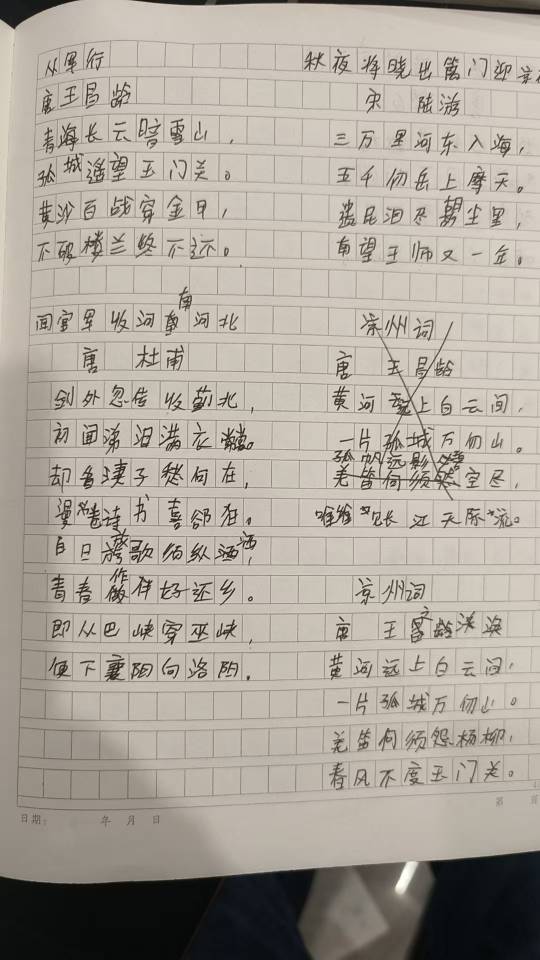 从军行
唐王昌龄
青海长云暗雪山，
孤城遥望玉门关。
黄沙百战穿金甲，
不破楼兰终不还。
闻官军收河南河北
唐 杜甫
剑外忽传收蓟北，
初闻涕泪满衣裳。
却看妻子愁何在，
漫卷诗书喜欲狂。
白日放歌须纵酒，
青春作伴好还乡。
即从巴峡穿巫峡，
便下襄阳向洛阳。
秋夜将晓出篱门迎凉
宋 陆游
三万里河东入海，
五千仞岳上摩天。
遗民泪尽胡尘里，
南望王师又一年。
凉州词
唐 王昌龄
黄河远上白云间，
一片孤城万仞山。
孤帆远影
羌笛何须 空尽，
唯 见长江天际流。
凉州词
唐 王之涣
黄河远上白云间，
一片孤城万仞山。
羌笛何须怨杨柳，
春风不度玉门关。
日期： 年 月 日
第 页